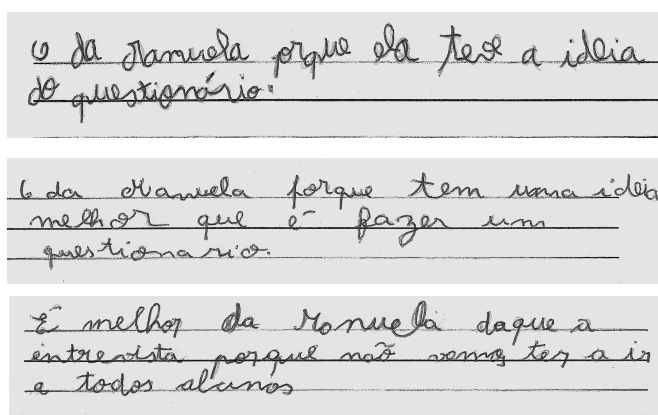 O da Manuela porque ela teve a ideia
do questionário.
O da Manuela porque tem uma ideia
melhor que é fazer um
questionario.
É melhor da Manuela daque a
entrevista porque não vamos ter a ir
a todos alunos